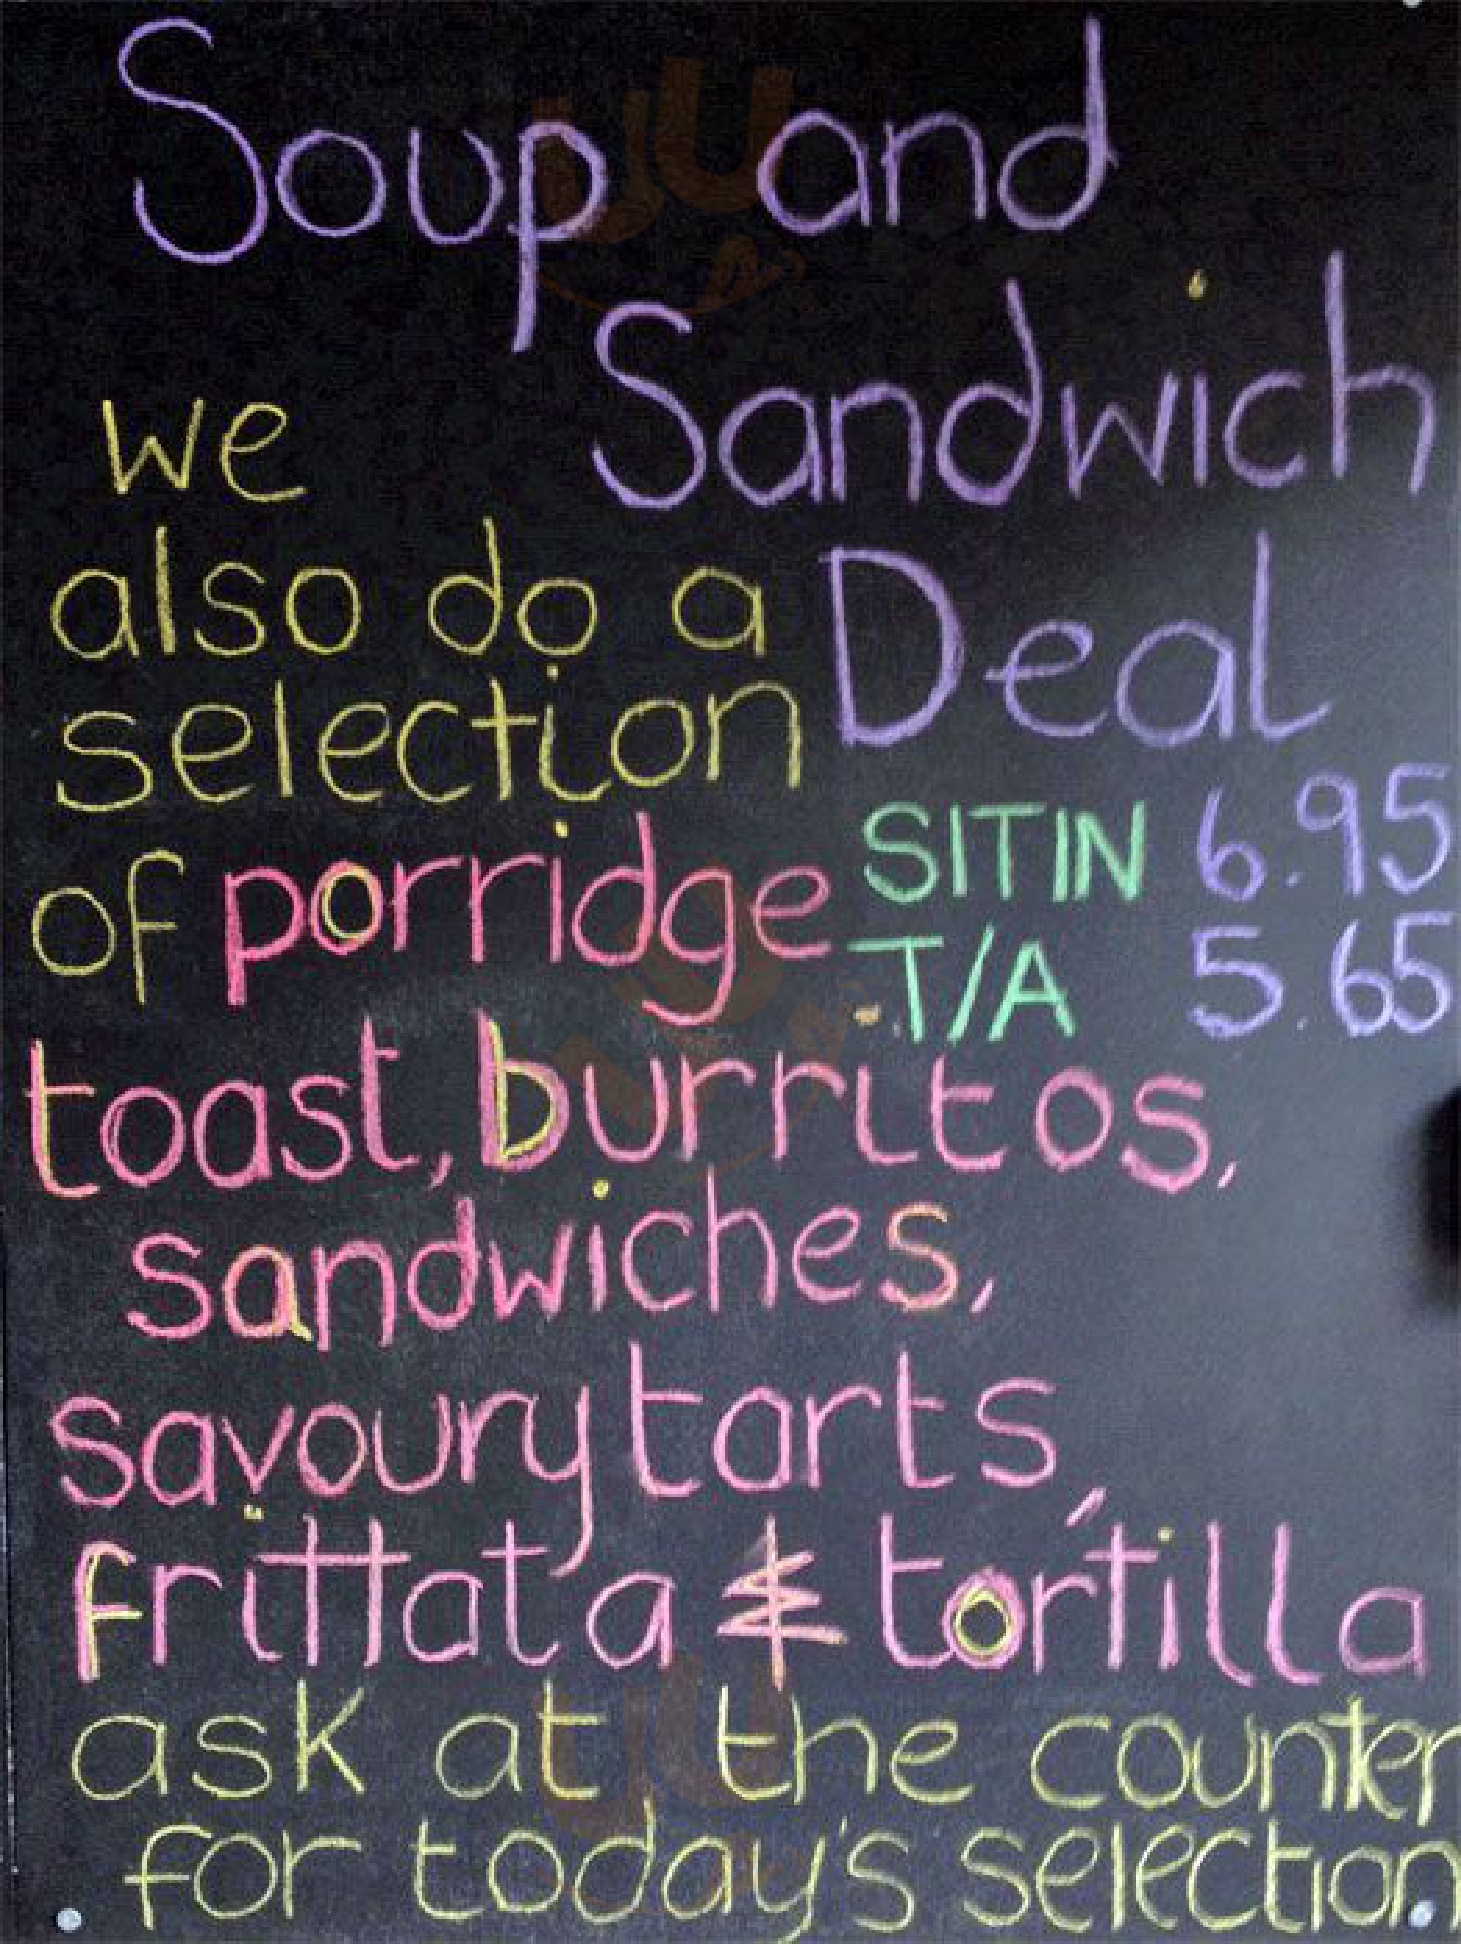 Soup and
Sandwich
Deal
SIT IN 6.95
T/A 5.65
we
also do a
selection
of porridge
toast, burritos,
sandwiches,
savoury tarts,
frittata & tortilla
ask at the counter
for today's selection